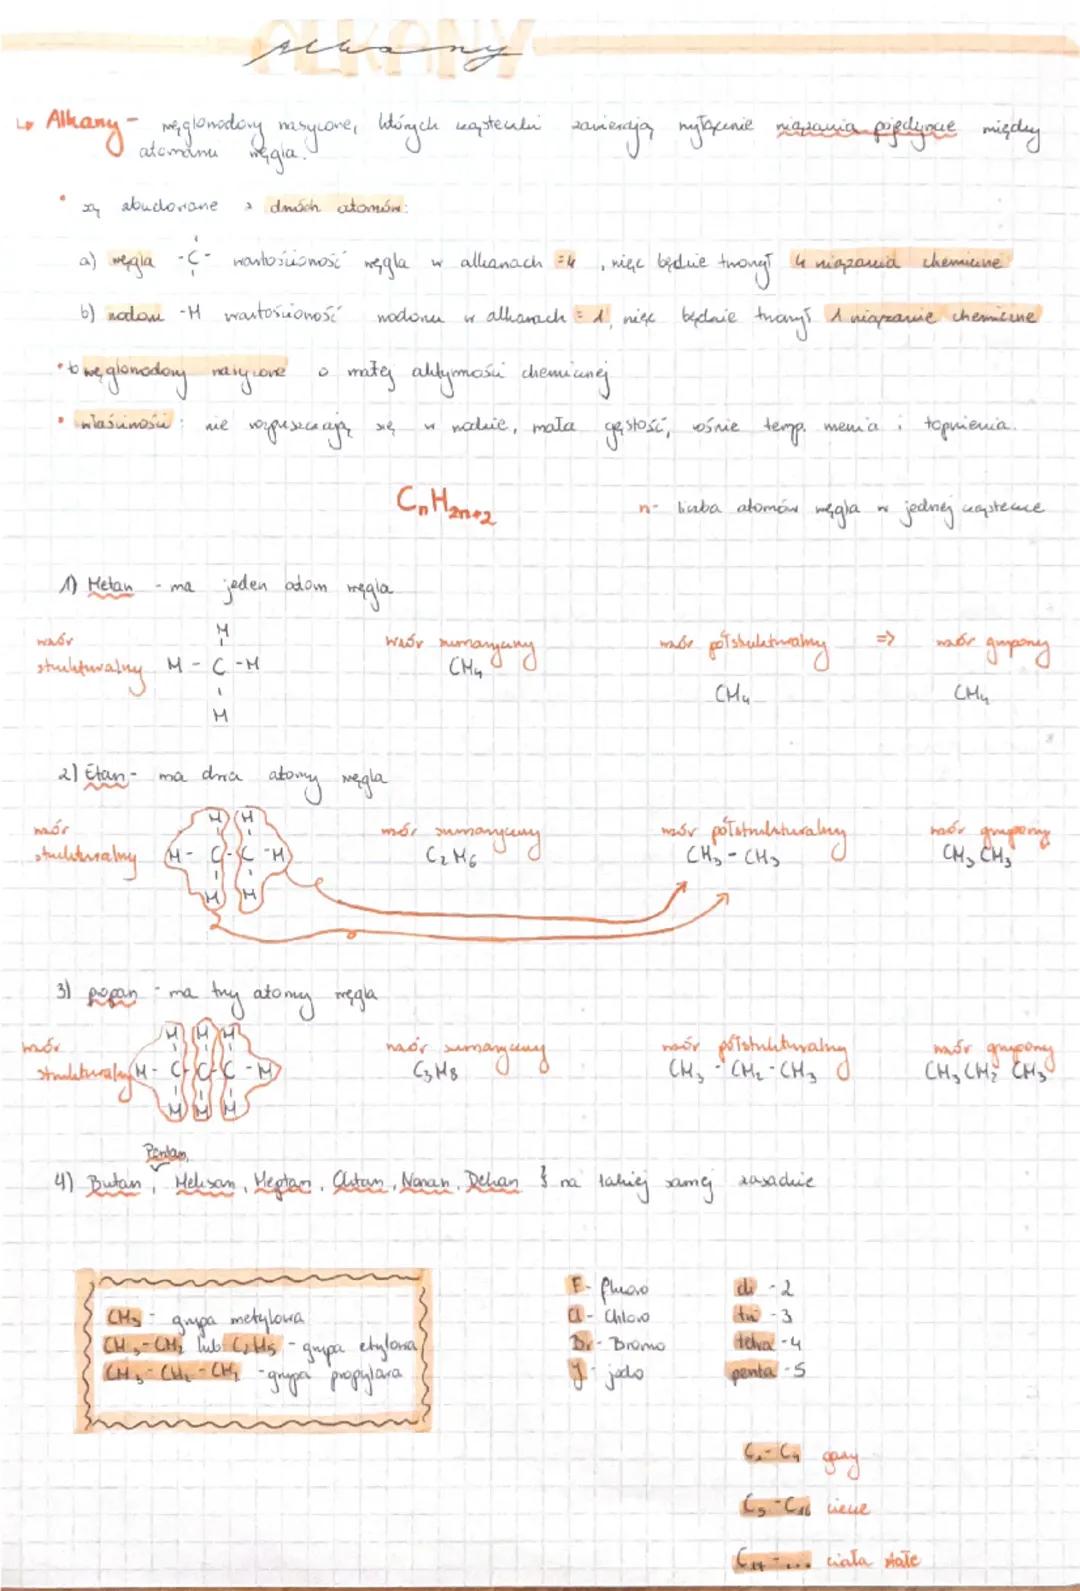 ALKANY
Alkany
↳ Alkany - węglowodory nasycone, których cząsteczki zawierają wyłącznie wiązania pojedyncze między
atomami węgla.
• są zbudowane z dwóch atomów:
a) węgla -C- wartościowość węgla w alkanach = 4, więc będzie tworzył 4 wiązania chemiczne
b) wodoru -H wartościowość wodoru w alkanach = 1, więc będzie tworzył 1 wiązanie chemiczne
• to węglowodory nasycone o małej aktywności chemicznej
• właściwości: nie rozpuszczają się w wodzie, mała gęstość, rośnie temp. wrzenia i topnienia.
CnH2n+2 n- liczba atomów węgla w jednej cząsteczce
1) Metan - ma jeden atom węgla
wzór strukturalny
H
H - C - H
H
wzór sumaryczny
CH4
wzór półstrukturalny => wzór grupowy
CH4 CH4
2) Etan - ma dwa atomy węgla
wzór strukturalny
H H
H - C - C - H
H H
wzór sumaryczny
C2H6
wzór półstrukturalny
CH3 - CH3
wzór grupowy
CH3 CH3
3) propan - ma trzy atomy węgla
wzór strukturalny
H H H
H - C - C - C - H
H H H
wzór sumaryczny
C3H8
wzór półstrukturalny
CH3 - CH2 - CH3
wzór grupowy
CH3 CH2 CH3
Pentan,
4) Butan, Heksan, Heptan, Oktan, Nonan, Dekan } na takiej samej zasadzie
CH3 - grupa metylowa
CH3-CH2 lub C2H5 - grupa etylowa
CH3-CH2-CH2 - grupa propylowa
F - fluoro
Cl - Chloro
Br - Bromo
J - jodo
di - 2
tri - 3
tetra - 4
penta - 5
C1-C4 gazy
C5-C16 ciecze
C17-... ciała stałe